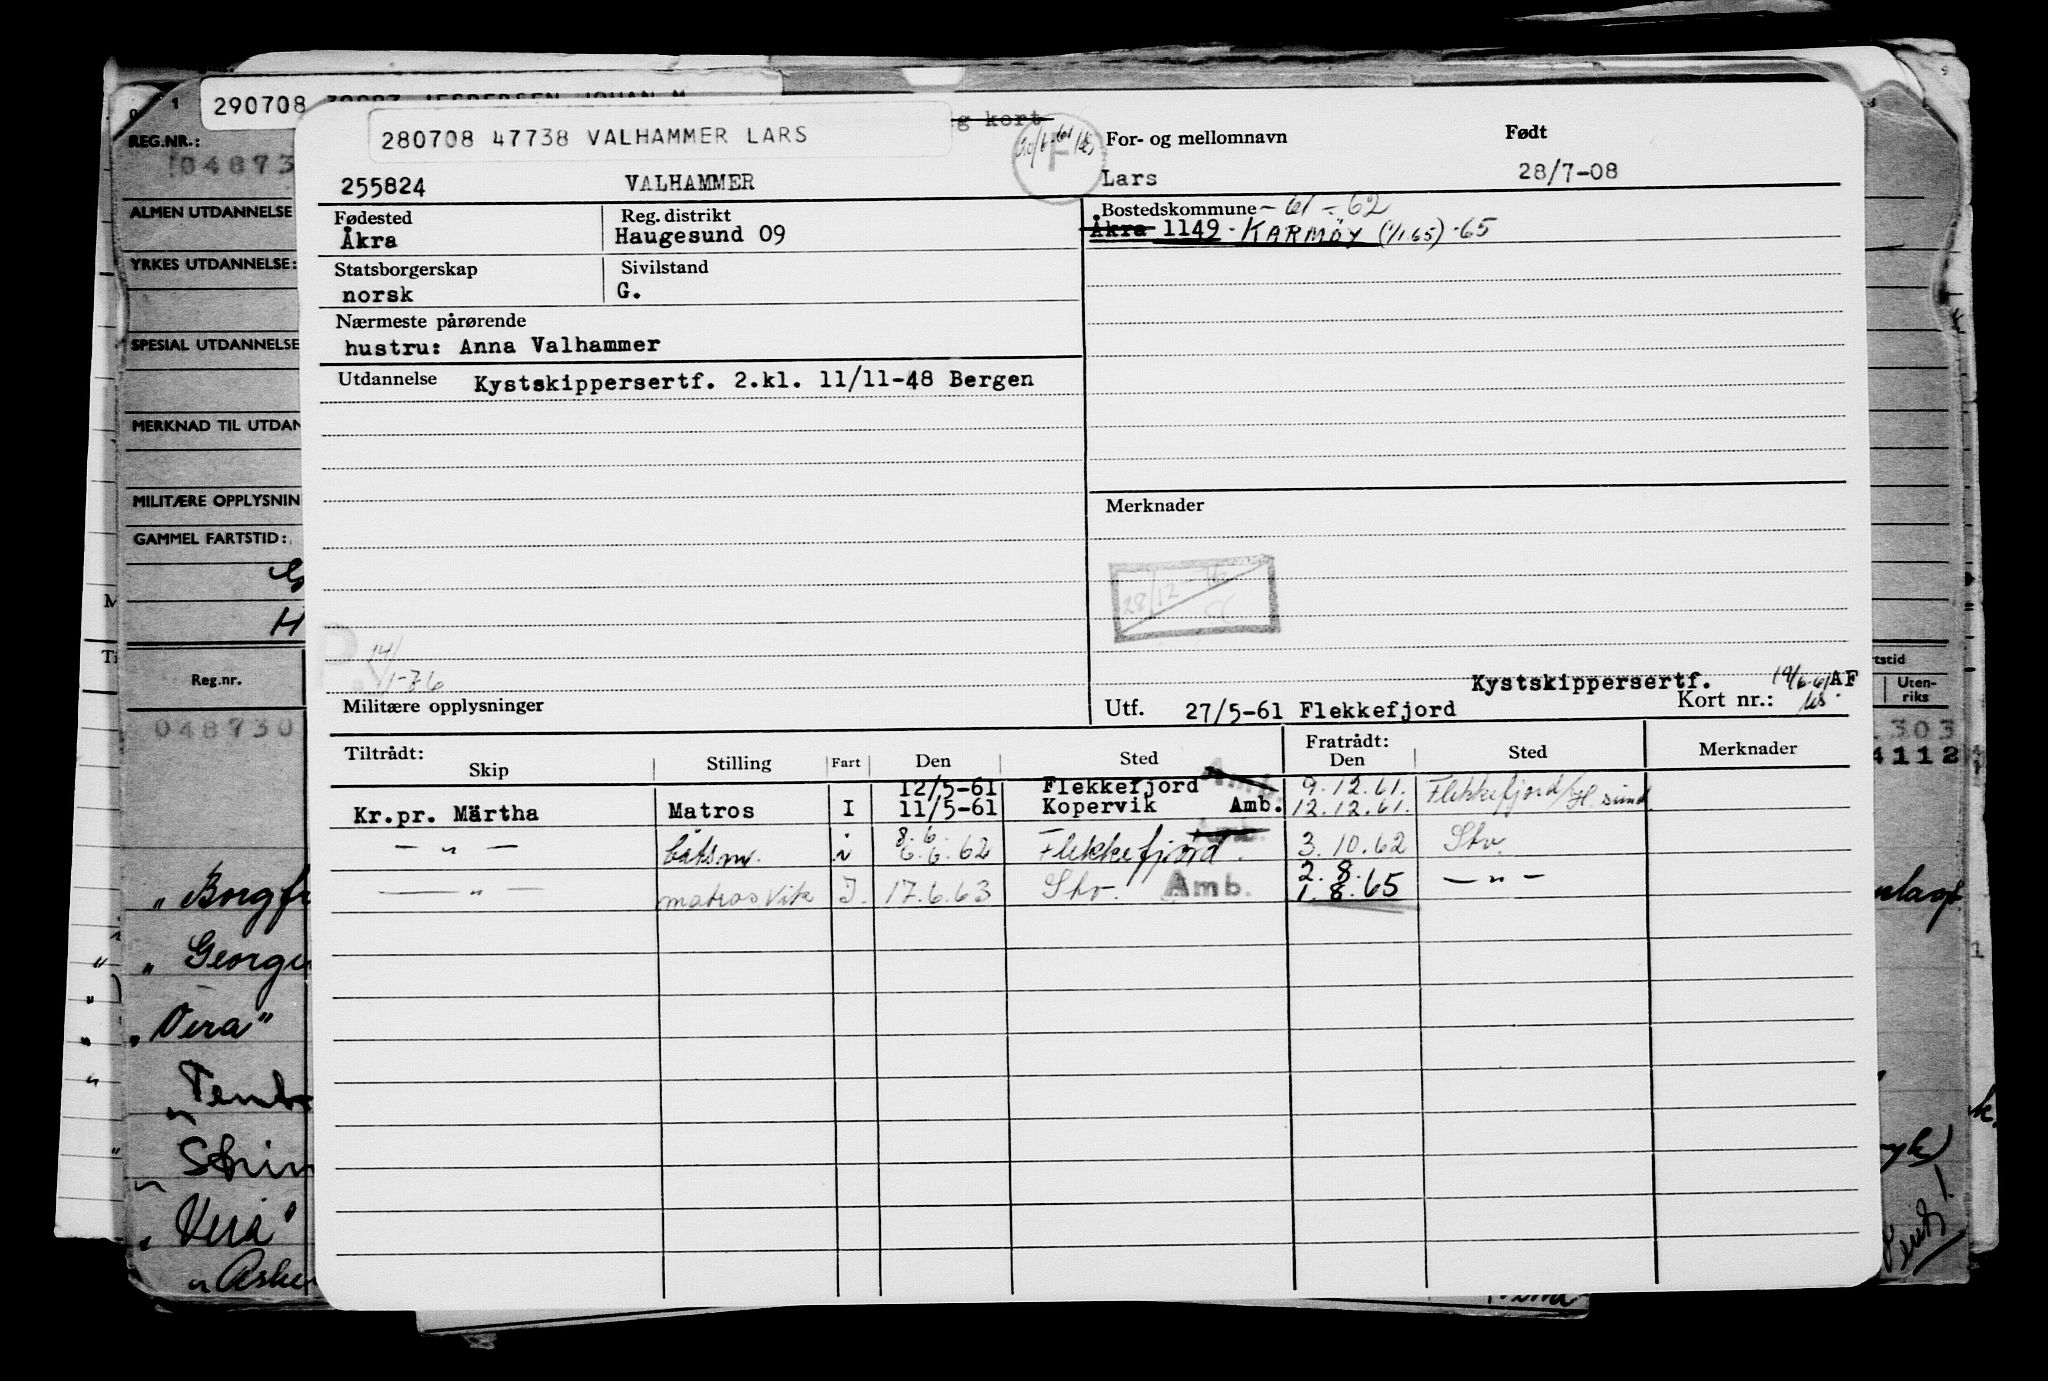 290708
280708 47738 VALHAMMER LARS
g kort
F
For- og mellomnavn
Født
REG.NR.:
04873
255824
VALHAMMER
Lars
28/7-08
ALMEN UTDANNELSE
Fødested
Reg. distrikt
Bostedskommune - 61 - 62
Åkra
Haugesund 09
Åkra 1149 - KARMØY (1/1.65) -65
YRKES UTDANNELSE:
Statsborgerskap
Sivilstand
norsk
G.
Nærmeste pårørende
SPESIAL UTDANNELSE
hustru: Anna Valhammer
Utdannelse
Kystskippersertf. 2.kl. 11/11-48 Bergen
MERKNAD TIL UTDAN
MILITÆRE OPPLYSNIN
Merknader
GAMMEL FARTSTID:
28/12
H
P.
14/1-76
Reg.nr.
Kystskippersertf.
AF
Militære opplysninger
Utf. 27/5-61 Flekkefjord
Kort nr.:
tstid
Uten-
riks
048730
303
4112
Tiltrådt:
Skip
Stilling
Fart
Den
Sted
Fratrådt:
Den
Sted
Merknader
12/5-61 Flekkefjord Amb. 9.12.61. Flekkefjord/H.sund
Kr.pr. Märtha Matros I 11/5-61 Kopervik Amb. 12.12.61.
8. 6.
— " — båtsm. i 6.6.62 Flekkefjord. Amb. 3.10.62 Stv.
2. 8.
— " — matros Vikr I. 17.6.63 Stv. Amb. 1. 8. 65 — " —
" Borgfr
" George
" Vera"
" Vera"